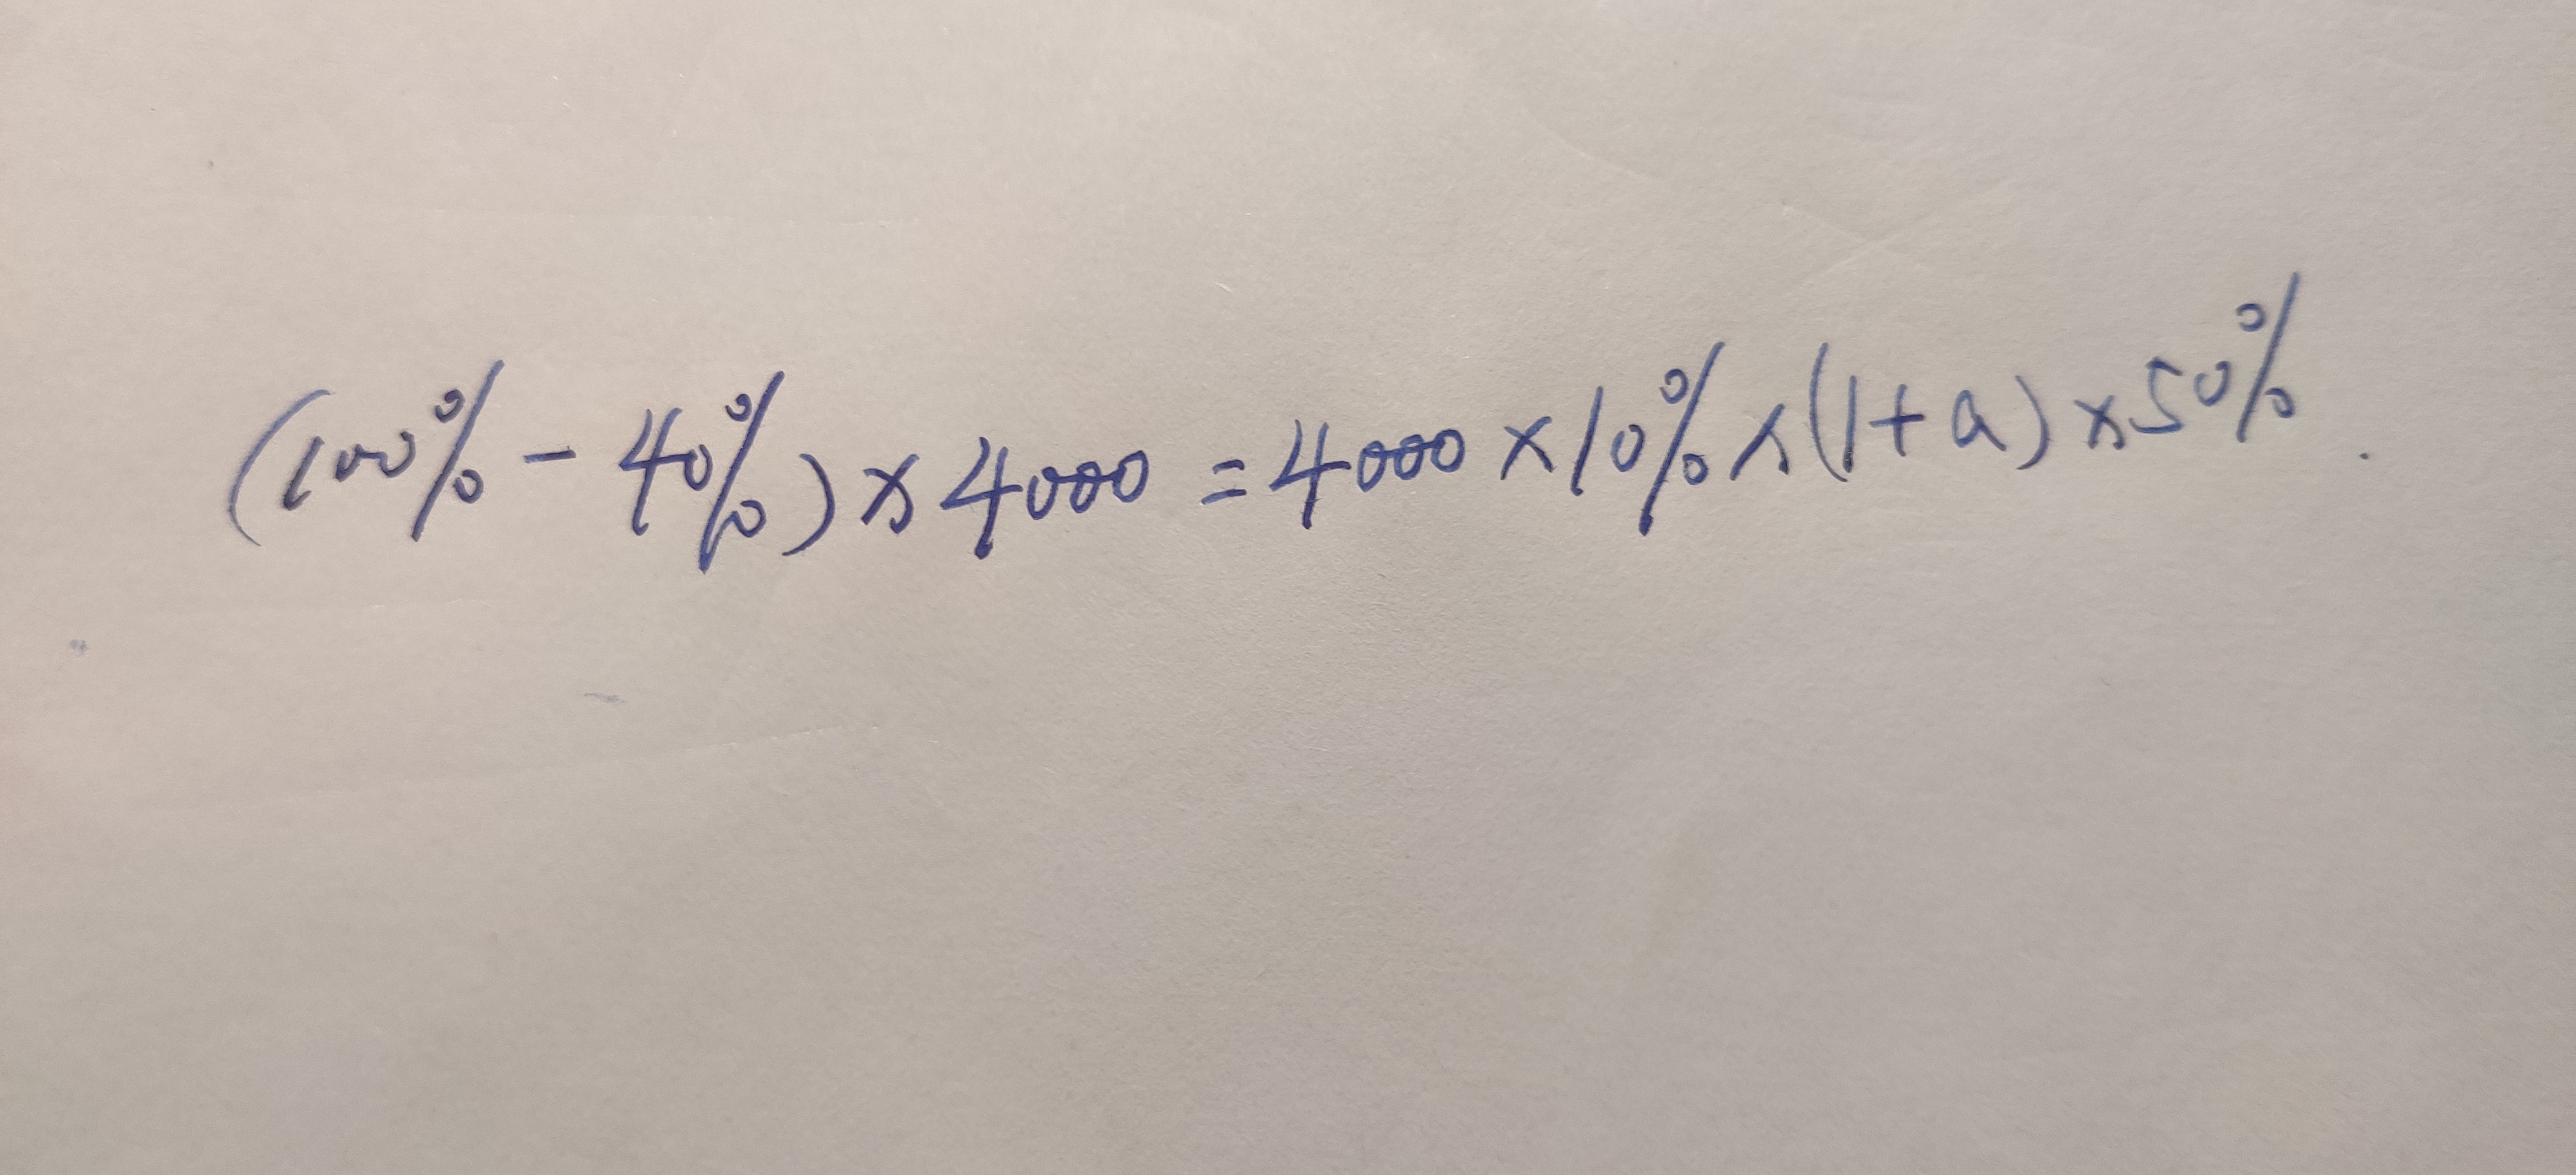 (100% - 40%) × 4000 = 4000 × 10% × (1 + a) × 50% .